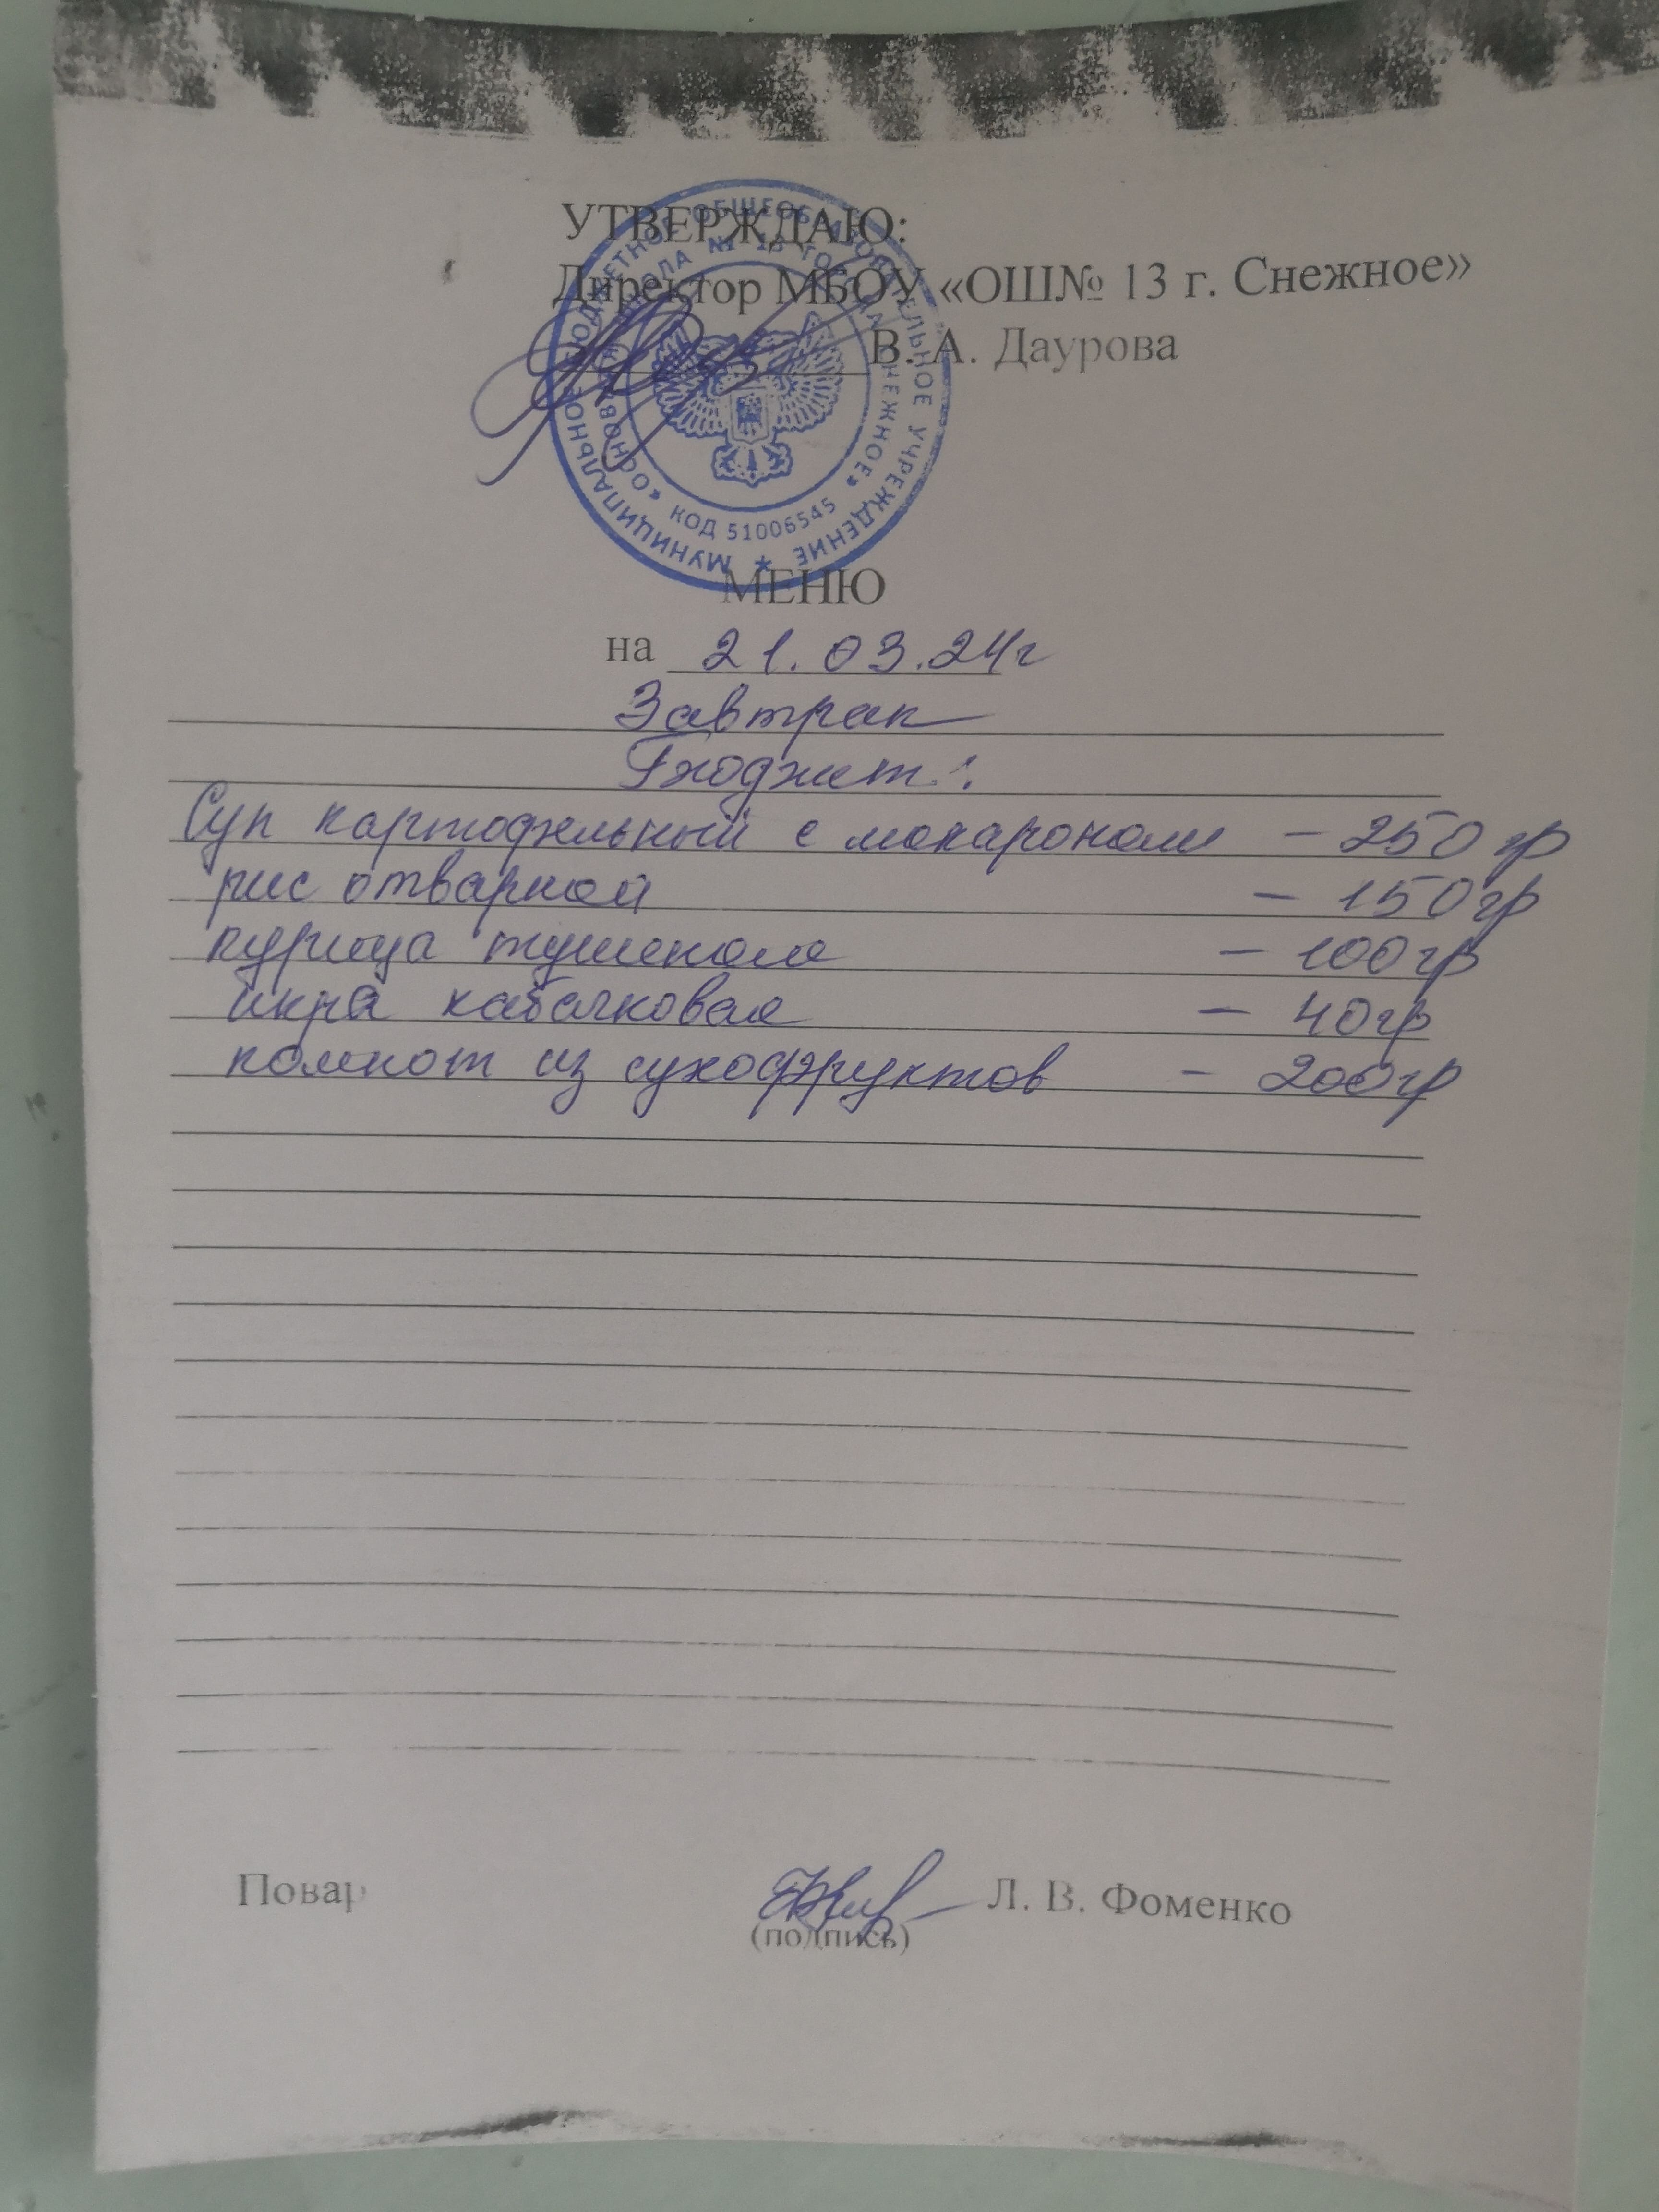 УТВЕРЖДАЮ:
Директор МБОУ «ОШ№ 13 г. Снежное»
В. А. Даурова
МУНИЦИПАЛЬНОЕ БЮДЖЕТНОЕ ОБЩЕОБРАЗОВАТЕЛЬНОЕ УЧРЕЖДЕНИЕ *
«ОСНОВНАЯ ШКОЛА № 13 ГОРОДА СНЕЖНОЕ»
КОД 51006545
МЕНЮ
на 21.03.24г
Завтрак
Бюджет:
Суп картофельный с макаронами - 250 гр
рис отварной - 150гр
курица тушеная - 100гр
икра кабачковая - 40гр
компот из сухофруктов - 200гр
Повар Л. В. Фоменко
(подпись)